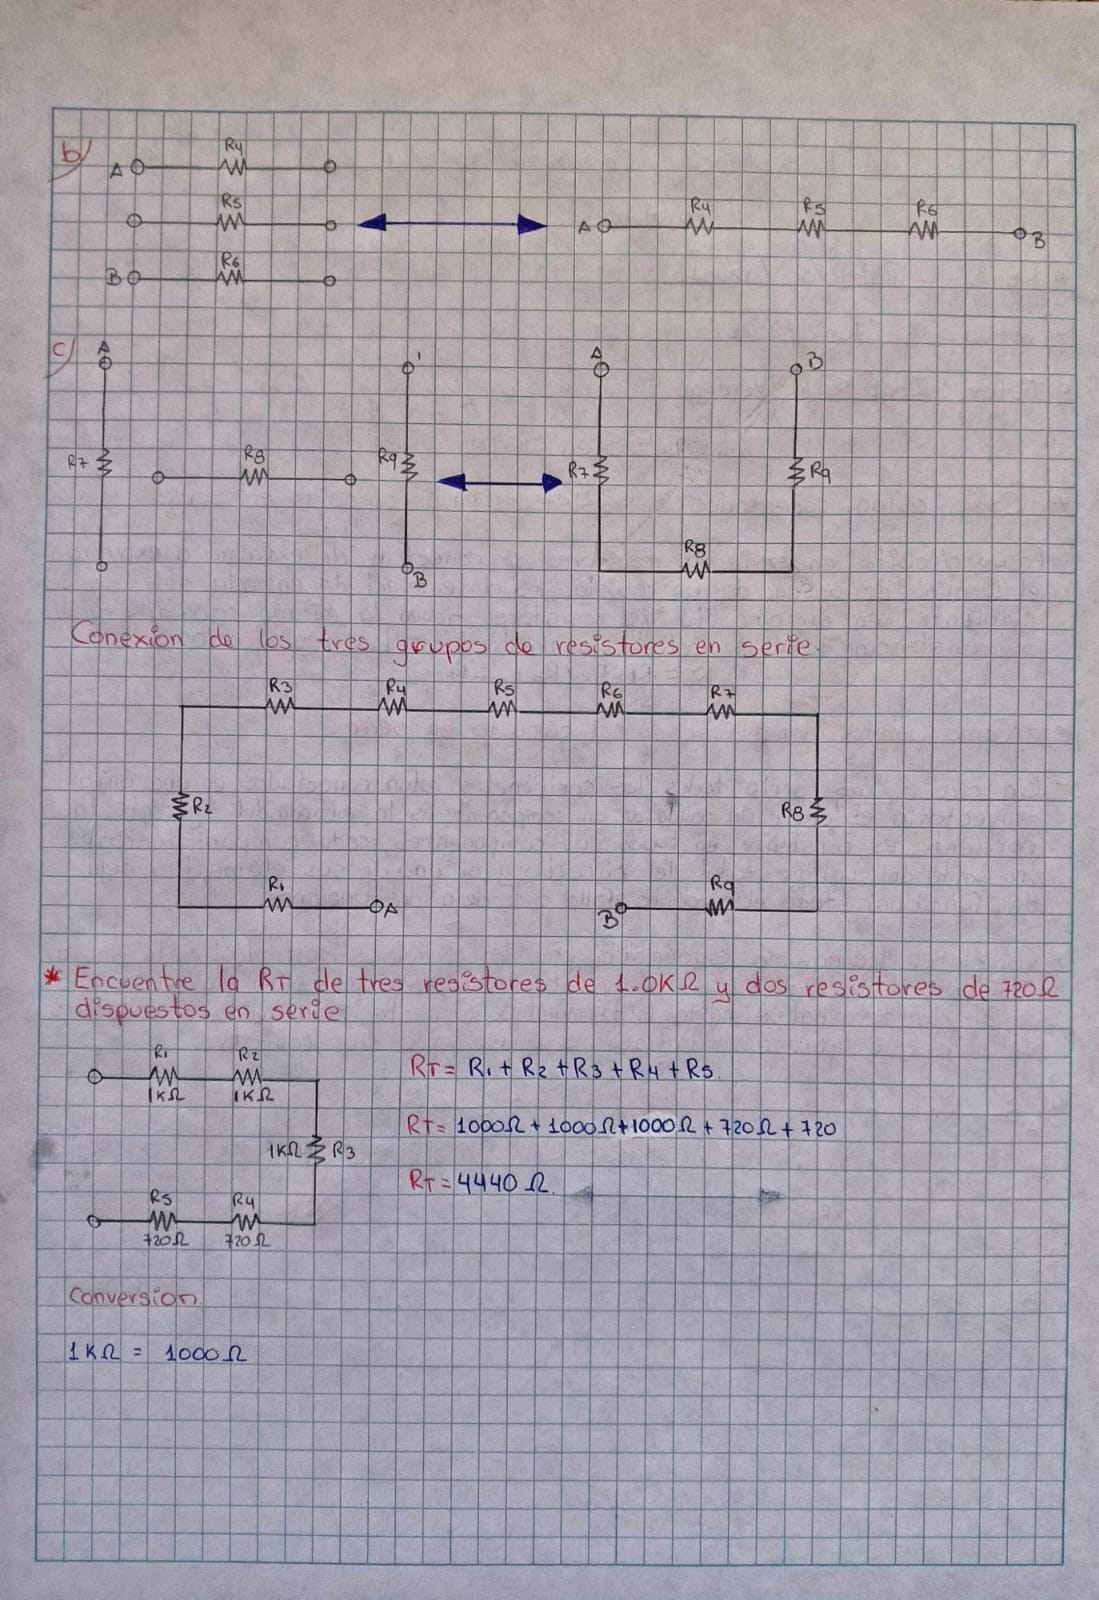 b)
A R4
R5
B R6
A R4 R5 R6 B
c)
A
R7
R8
R9
B
A
R7
R8
B
R9
Conexion de los tres grupos de resistores en serie.
R3 R4 R5 R6 R7
R2 R8
R1 A B R9
* Encuentre la RT de tres resistores de 1.0KΩ y dos resistores de 720Ω
dispuestos en serie
R1 R2
1KΩ 1KΩ
1KΩ R3
R5 R4
720Ω 720Ω
RT= R1 + R2 + R3 + R4 + R5.
RT= 1000Ω + 1000Ω+1000Ω + 720Ω + 720
RT = 4440 Ω.
Conversion.
1KΩ = 1000Ω